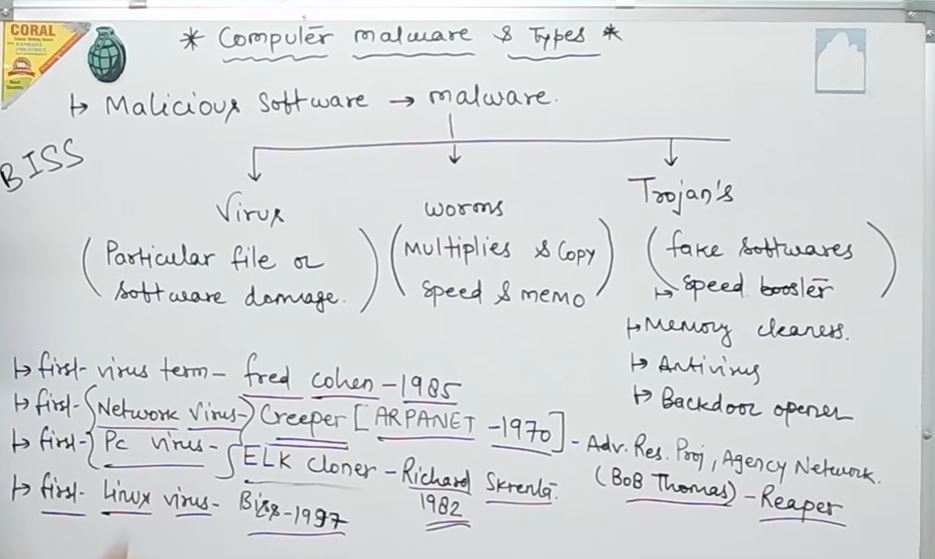 CORAL
* Computer malware & Types *
↦ Malicious Software → malware.
BISS
Virus
(Particular file or
software damage.)
worms
(Multiplies & Copy
Speed & memo)
Trojan's
(fake softwares
↦ Speed booster)
↦ Memory cleaners.
↦ Antivirus
↦ Backdoor opener
↦ first- virus term - fred cohen - 1985
↦ first- {Network Virus-} Creeper [ARPANET - 1970] - Adv. Res. Proj, Agency Network.
(BoB Thomas) - Reaper
↦ first- {Pc virus - {ELK Cloner - Richard Skrenta.
1982
↦ first- Linux virus - Biss - 1997